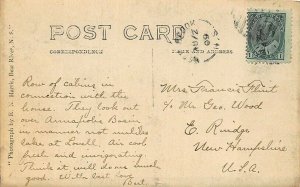 POST CARD
CORRESPONDENCE
NAME AND ADDRESS
"Photograph by R. N. Harris, Bear River, N. S."
Row of cabins in
connection with the
house. They look out
over Annapolis Basin
in manner not unlike
lake at Lowell. Air cool
fresh and invigorating.
Think it will do much
good. With best love
Bert.
Mrs Francis Flint
c/o Mr Geo. Wood
E. Rindge
New Hampshire
U.S.A.